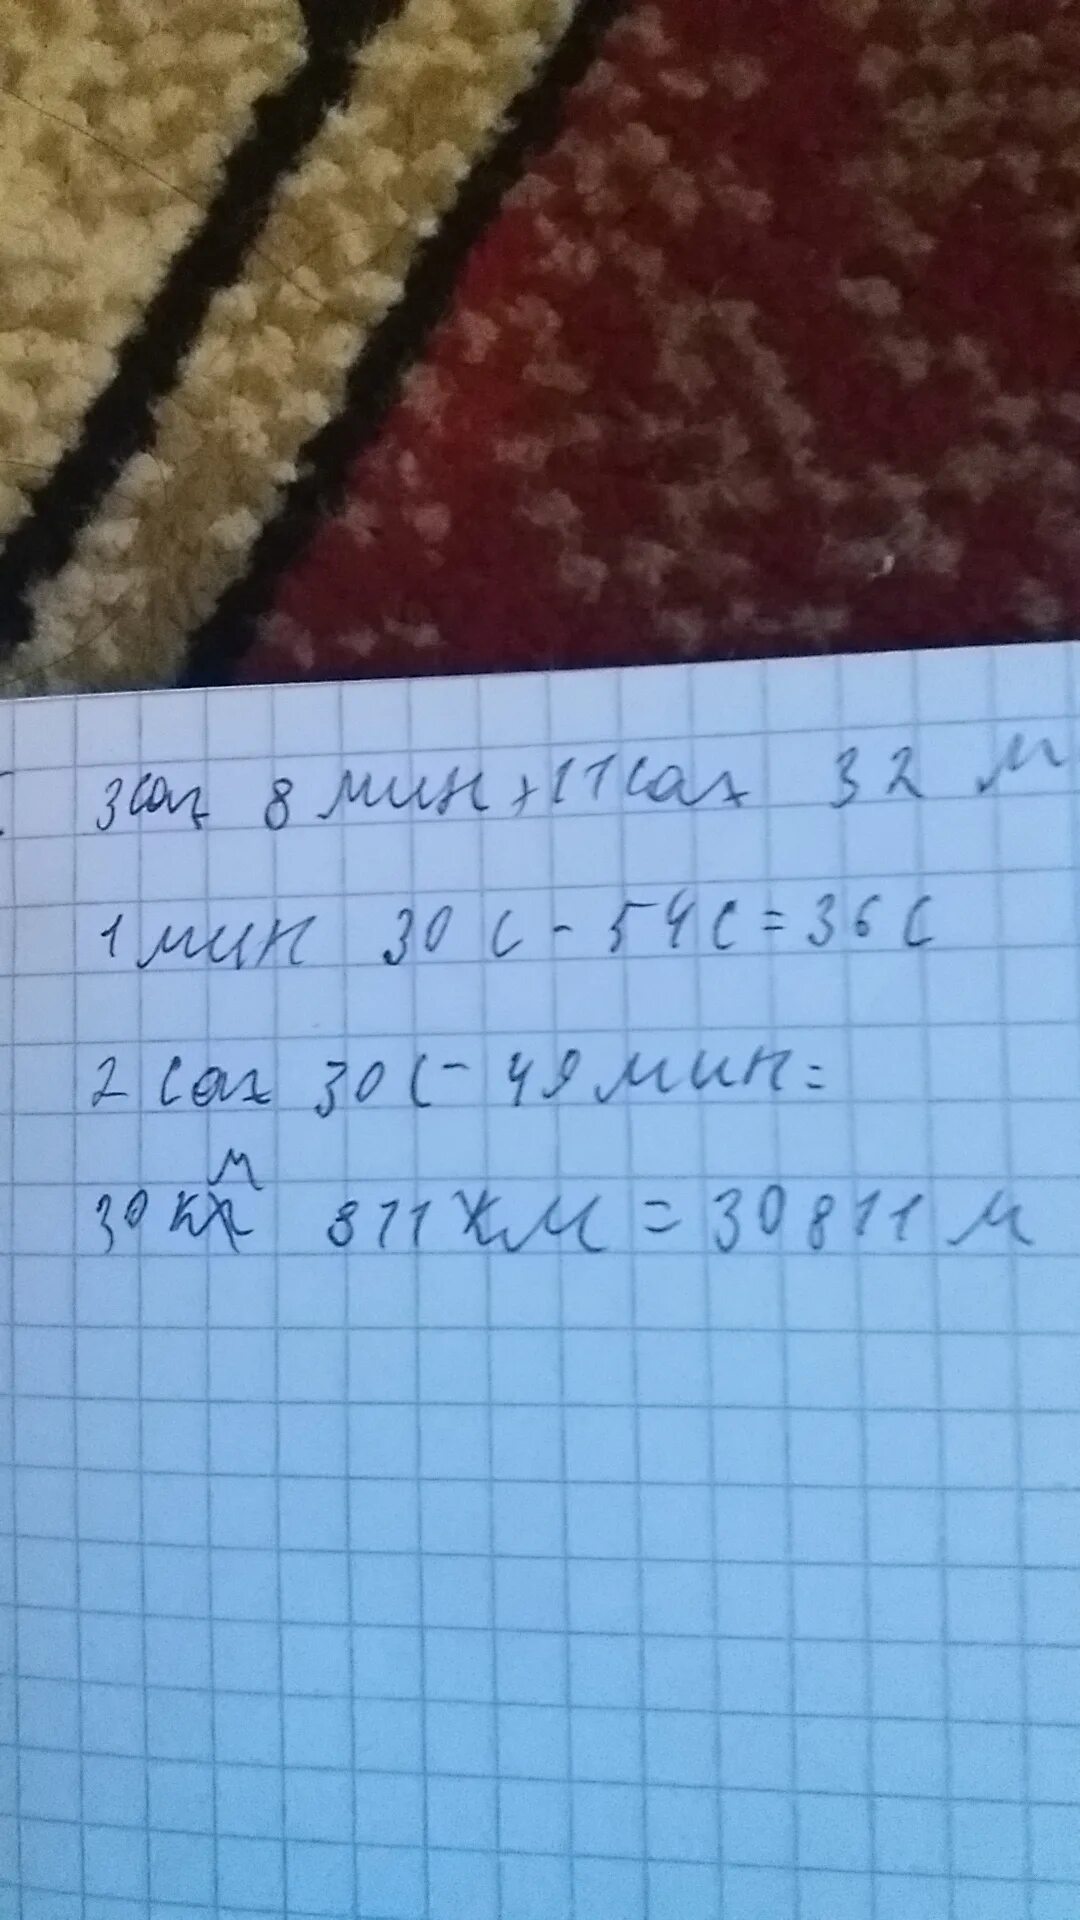 3 сах 8 мин + 11 сах 32 м
1 мин 30 с - 54 с = 36 с
2 сах 30 с - 49 мин =
30 км 811 м = 30811 м